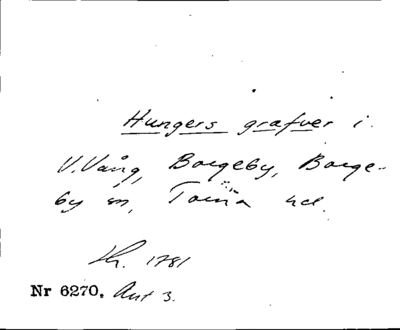 Hungers grafver i
V. Vång, Borgeby, Borge-
by sn, Torna hd.
Sk. 1781
Nr 6270. Akt 3.